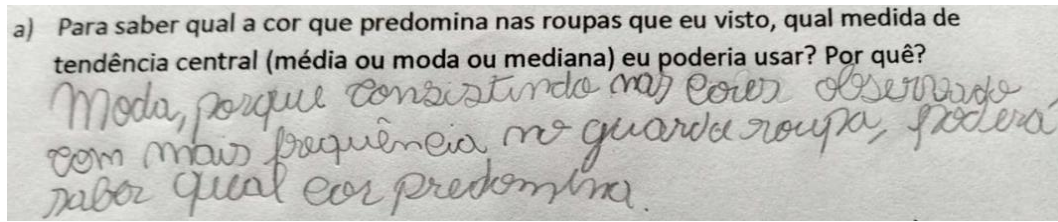 a) Para saber qual a cor que predomina nas roupas que eu visto, qual medida de
tendência central (média ou moda ou mediana) eu poderia usar? Por quê?
Moda, porque consistindo nas cores observado
com mais frequência no guarda roupa, poderá
saber qual cor predomina.